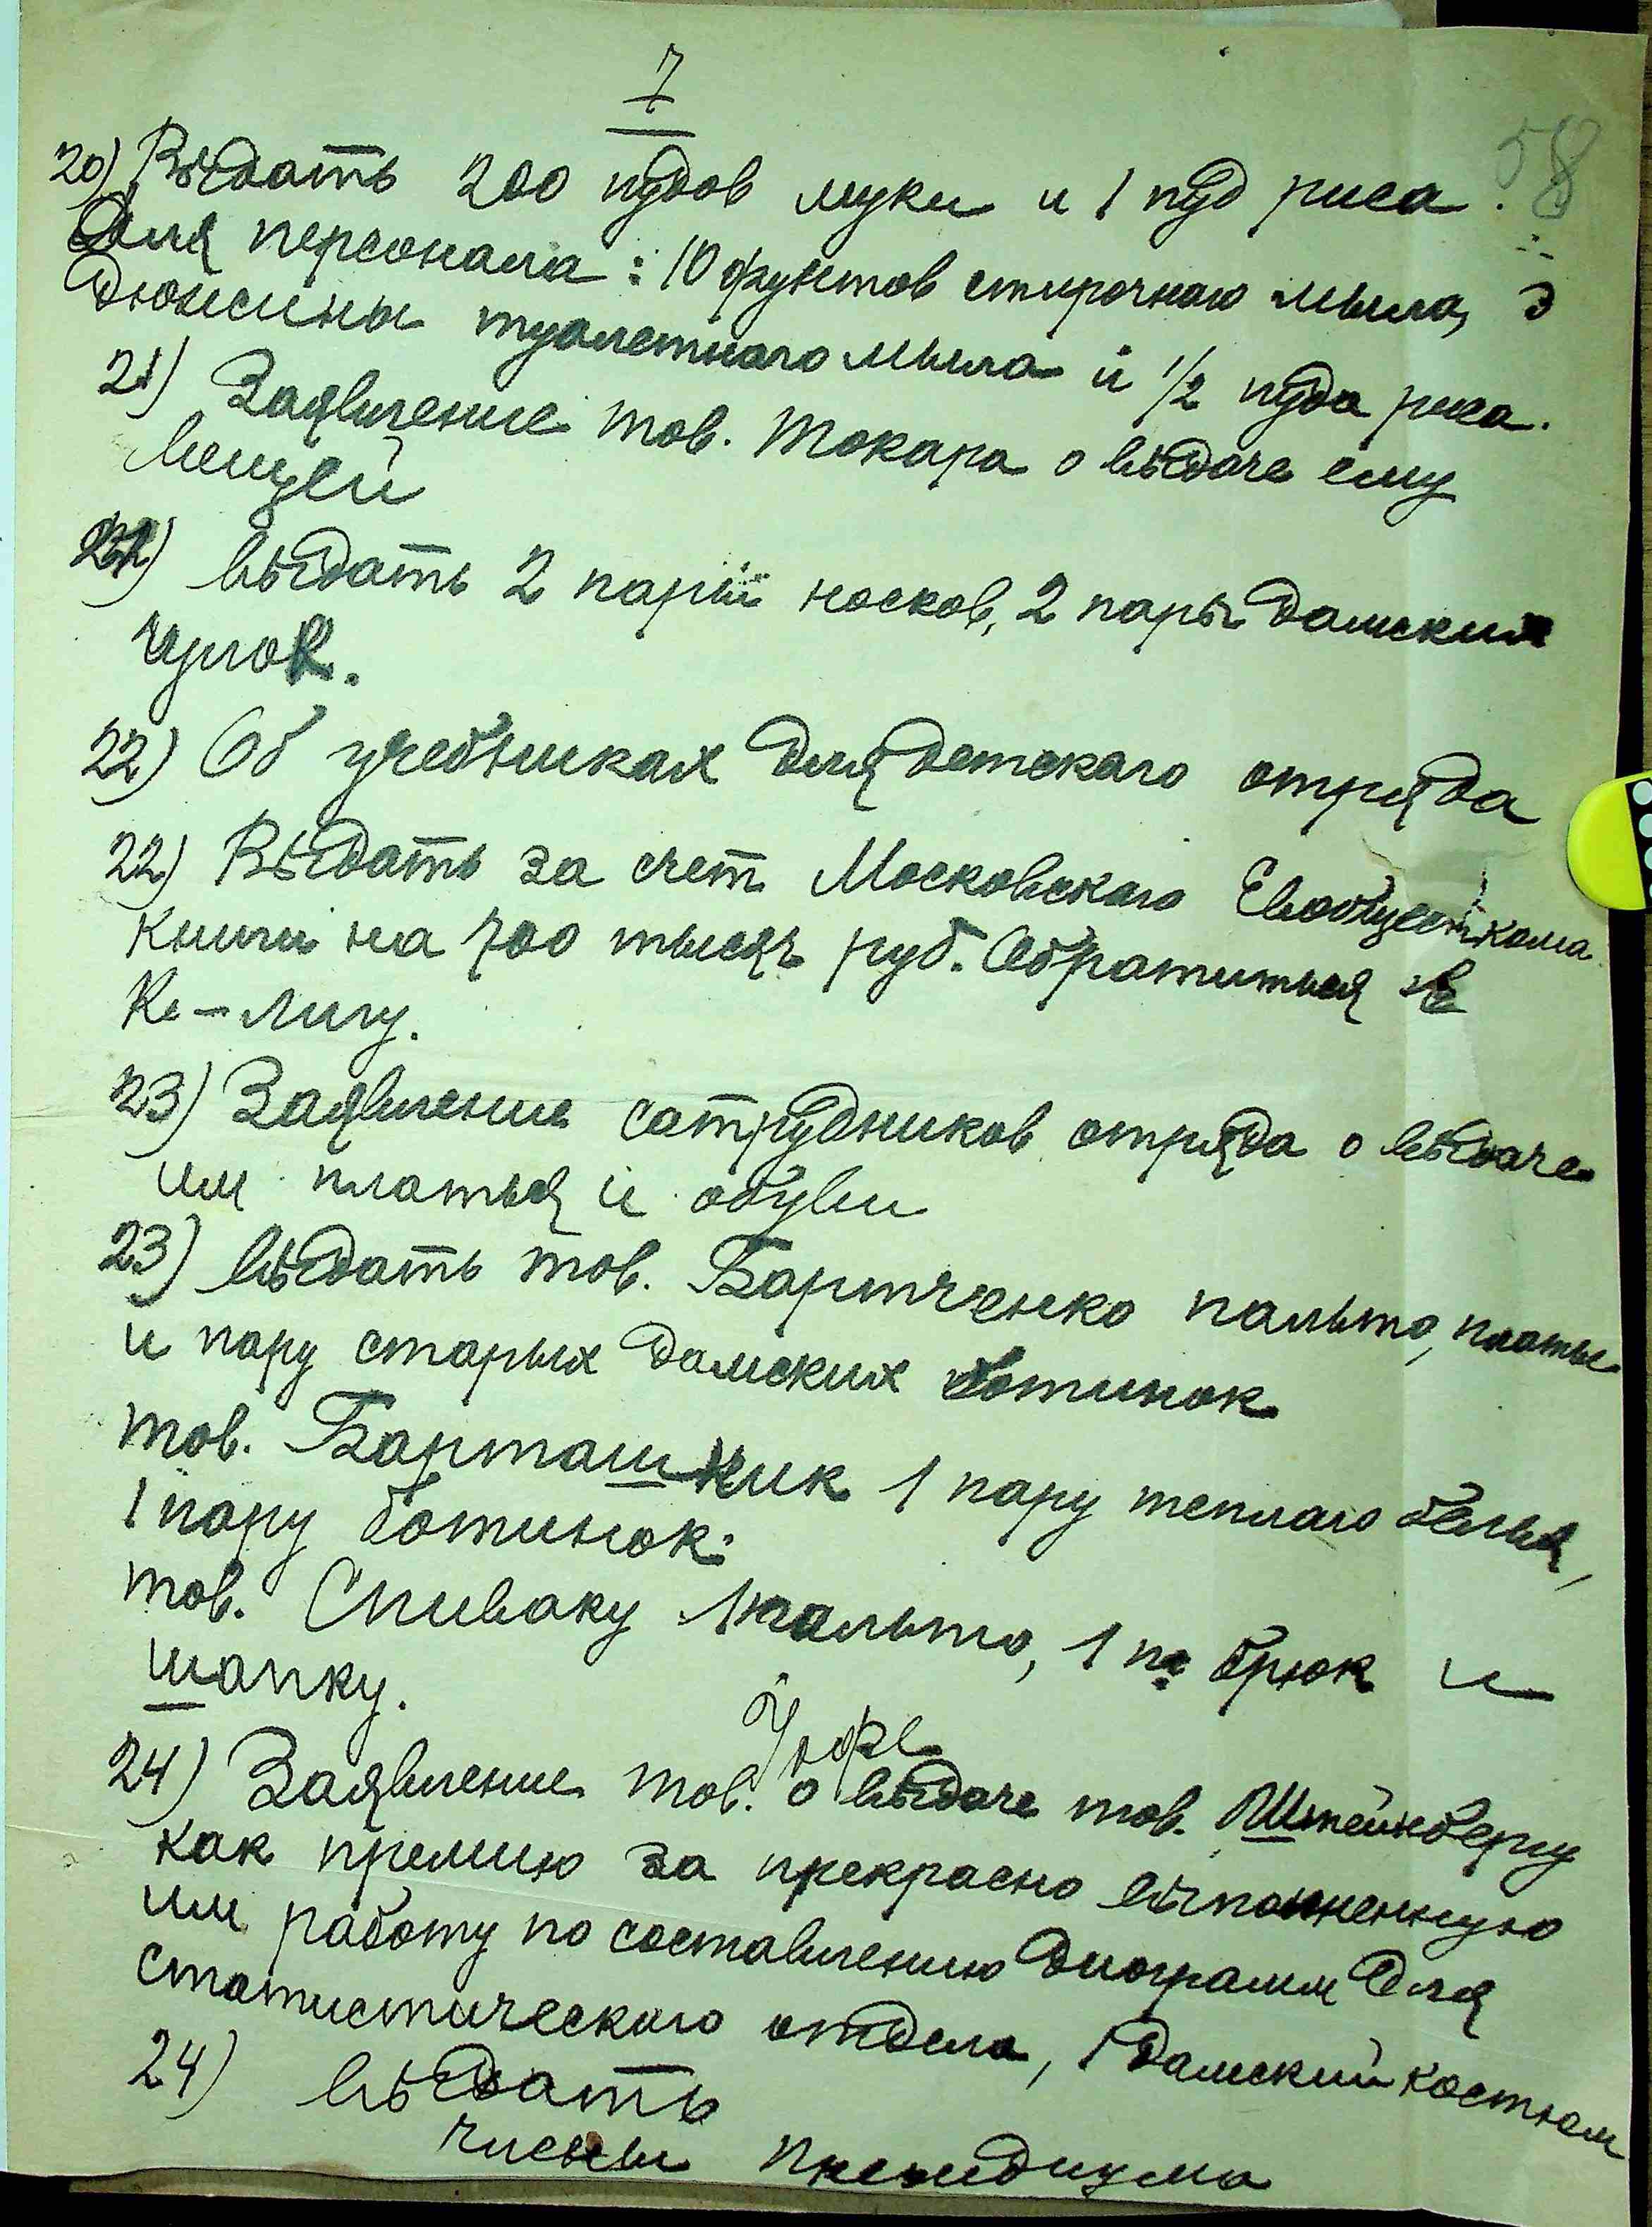 7
58
20) Выдать 200 пудов муки и 1 пуд риса.
Для персонала: 10 фунтов стирочнаго мыла, 3
дюжины туалетнаго мыла и 1/2 пуда риса.
21) Заявление тов. Токара о выдаче ему
вещей
21) Выдать 2 пары носков, 2 пары дамских
чулок.
22) Об учебниках для детскаго отряда
22) Выдать за счет Московскаго Евобщесткома
книги на 700 тысяч руб. Обратиться в
Ке-Лигу.
23) Заявление сотрудников отряда о выдаче
им платья и обуви
23) Выдать тов. Бартченко пальто, платье
и пару старых дамских ботинок
тов. Барташник 1 пару теплаго белья,
1 пару ботинок:
тов. Спиваку 1 пальто, 1 п. брюк и
шапку.
24) Заявление тов. о выдаче тов. Штейнбергу
как премию за прекрасно выполненную
им работу по составлению диограмм для
статистическаго отдела, 1 дамский костюм
24) Выдать
Члены Президиума